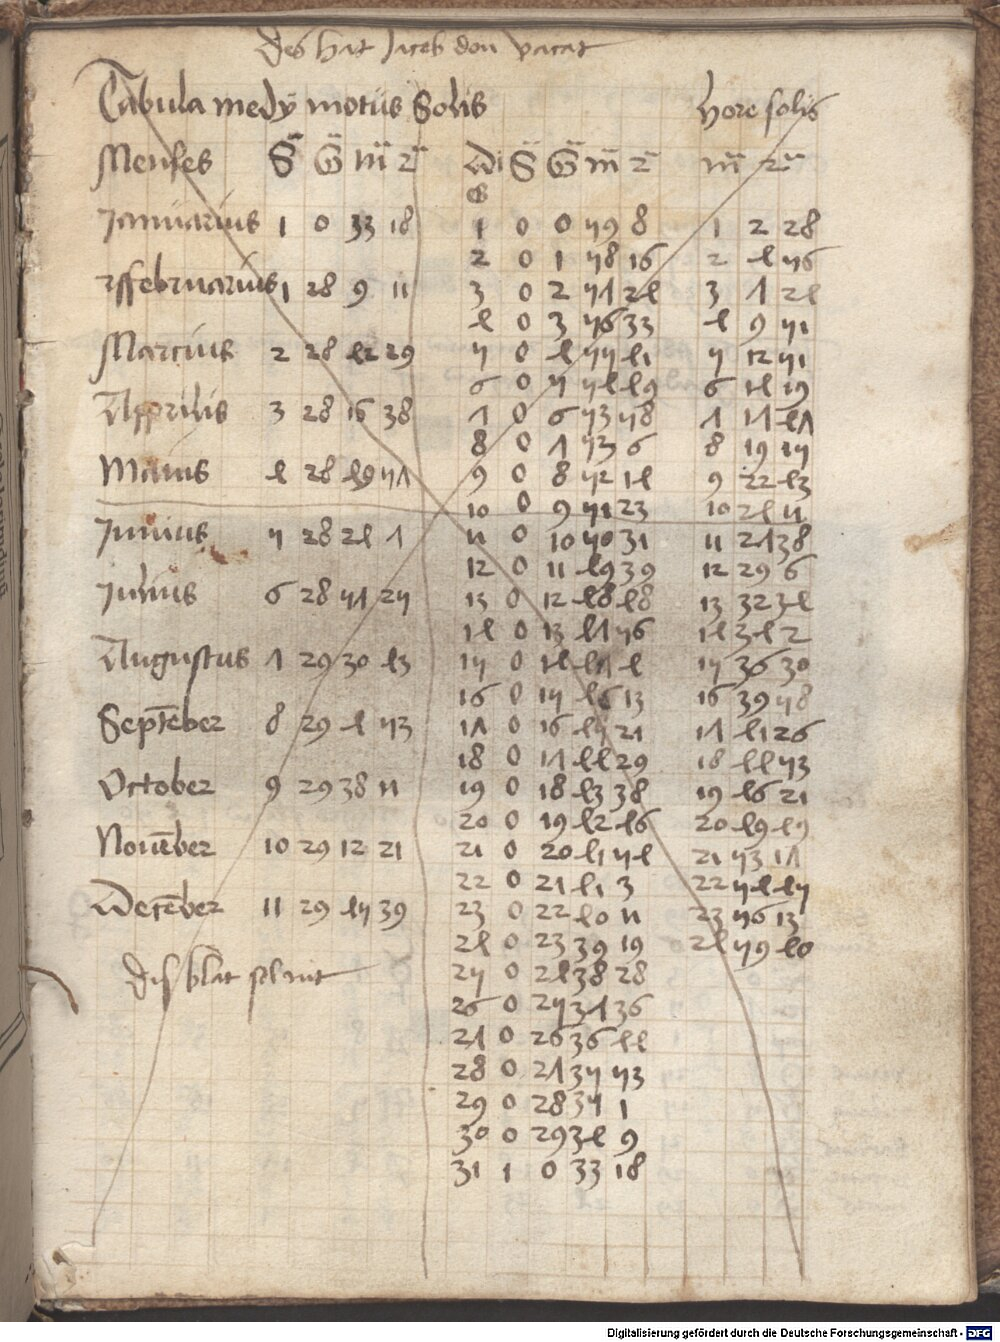 des hat Jacob don vacat
Tabula medÿ motus Solis hore solis
Menses S G m 2 Di S G m 2 m 2
es
Januarius 1 0 33 18 1 0 0 59 8 1 2 28
2 0 1 58 16 2 4 56
Februarius 1 28 9 11 3 0 2 57 24 3 7 24
4 0 3 56 33 4 9 51
Marcius 2 28 42 29 5 0 4 55 41 5 12 51
6 0 5 54 49 6 14 19
Apprilis 3 28 16 38 7 0 6 53 58 7 17 47
8 0 7 53 6 8 19 15
Maius 4 28 49 57 9 0 8 52 14 9 22 43
10 0 9 51 23 10 24 11
Junius 5 28 24 7 11 0 10 50 31 11 27 38
12 0 11 49 39 12 29 6
Julius 6 28 57 25 13 0 12 48 48 13 32 34
14 0 13 47 56 14 34 2
Augustus 7 29 30 43 15 0 14 47 4 15 36 30
16 0 15 46 13 16 39 58
Septēber 8 29 4 53 17 0 16 45 21 17 41 26
18 0 17 44 29 18 44 53
October 9 29 38 11 19 0 18 43 38 19 46 21
20 0 19 42 46 20 49 49
Nouēber 10 29 12 21 21 0 20 41 54 21 53 17
22 0 21 41 3 22 54 45
Decēber 11 29 45 39 23 0 22 40 11 23 56 13
24 0 23 39 19 24 59 40
dis blat 25 0 24 38 28
26 0 25 37 36
27 0 26 36 44
28 0 27 35 53
29 0 28 35 1
30 0 29 34 9
31 1 0 33 18
Digitalisierung gefördert durch die Deutsche Forschungsgemeinschaft - DFG